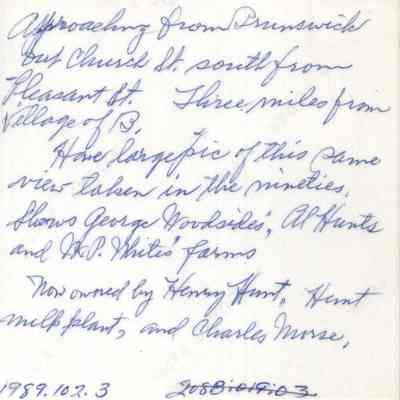 Approaching from Brunswick
out Church St. south from
Pleasant St. Three miles from
Village of B.
Have large pic of this same
view taken in the nineties.
Shows George Woodsides', Al Hunts
and M.P. Whites' farms
Now owned by Henry Hunt, Hunt
milk plant, and Charles Morse.
1989.107.3 2088.019.03